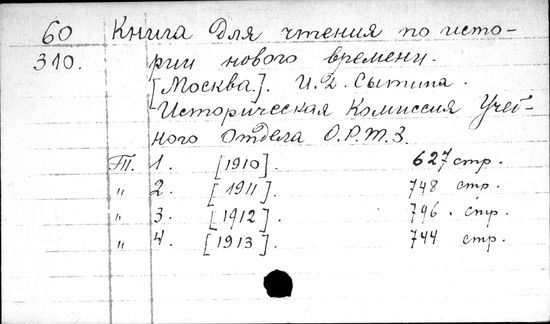 60 Книга для чтения по исто-
310. рии нового времени.
[Москва]. И.Д. Сытина.
Историческая Комиссия Учеб-
ного Отдела О.Р.Т.З.
Т. 1. [1910]. 627 стр.
" 2. [1911]. 748 стр.
" 3. [1912]. 796. стр.
" 4. [1913]. 744 стр.